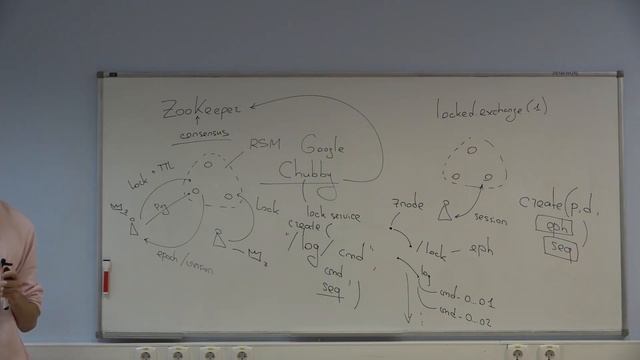 ZooKeeper
consensus
RSM
Google
Chubby
lock service
Lock + TTL
Lock
epoch/version
create(
"/log/cmd"
cmd
seq )
locked exchange (1)
znode
session
/lock - eph
log
cmd-0..01
cmd-0..02
create(p, d,
eph
seq )